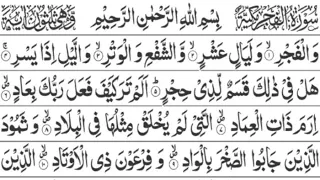 سُوْرَةُ الْفَجْرِ مَكِّيَّةٌ بِسْمِ اللهِ الرَّحْمٰنِ الرَّحِيْمِ وَهِيَ ثَلٰثُوْنَ اٰيَةً
وَ الْفَجْرِۙ۝۱ وَ لَيَالٍ عَشْرٍۙ۝۲ وَّ الشَّفْعِ وَ الْوَتْرِۙ۝۳ وَ الَّيْلِ اِذَا يَسْرِۚ۝۴
هَلْ فِيْ ذٰلِكَ قَسَمٌ لِّذِيْ حِجْرٍؕ۝۵ اَلَمْ تَرَ كَيْفَ فَعَلَ رَبُّكَ بِعَادٍ۪ۙ۝۶
اِرَمَ ذَاتِ الْعِمَادِ۪ۙ۝۷ الَّتِيْ لَمْ يُخْلَقْ مِثْلُهَا فِي الْبِلَادِ۪ۙ۝۸ وَ ثَمُوْدَ
الَّذِيْنَ جَابُوا الصَّخْرَ بِالْوَادِ۪ۙ۝۹ وَ فِرْعَوْنَ ذِي الْاَوْتَادِ۪ۙ۝۱۰ الَّذِيْنَ